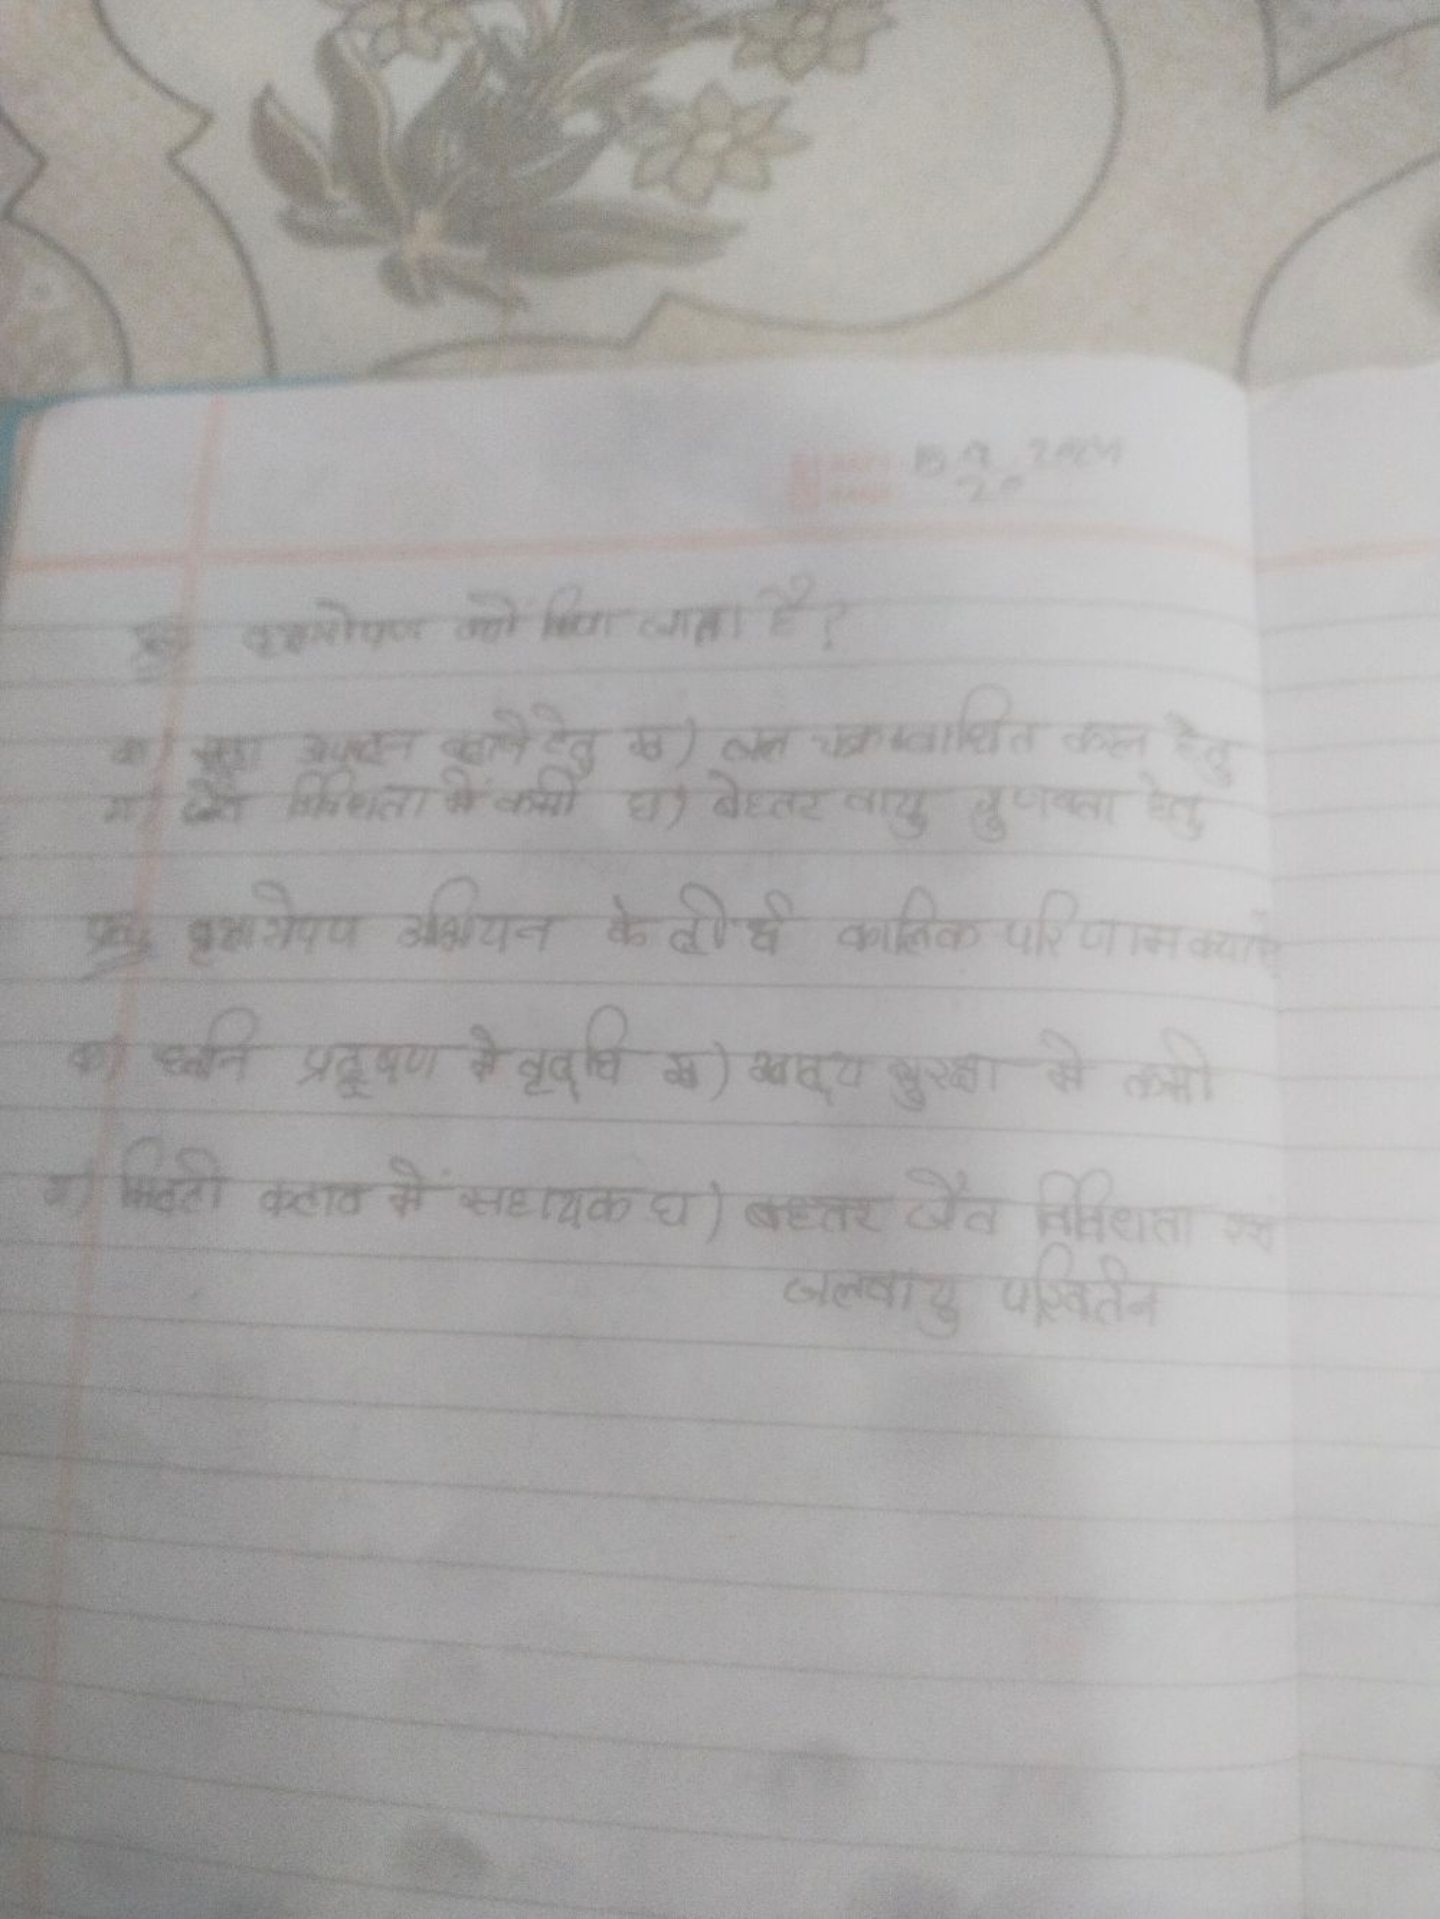 वृक्षारोपण क्यों किया जाता है?
क) मृदा अपरदन बढ़ाने हेतु ख) जल चक्र बाधित करने हेतु
ग) जैव विविधता में कमी घ) बेहतर वायु गुणवत्ता हेतु
वृक्षारोपण अभियान के दीर्घ कालिक परिणाम
क) ध्वनि प्रदूषण में वृद्धि ख) खाद्य सुरक्षा में कमी
ग) मिट्टी कटाव में सहायक घ) बेहतर जैव विविधता
जलवायु परिवर्तन